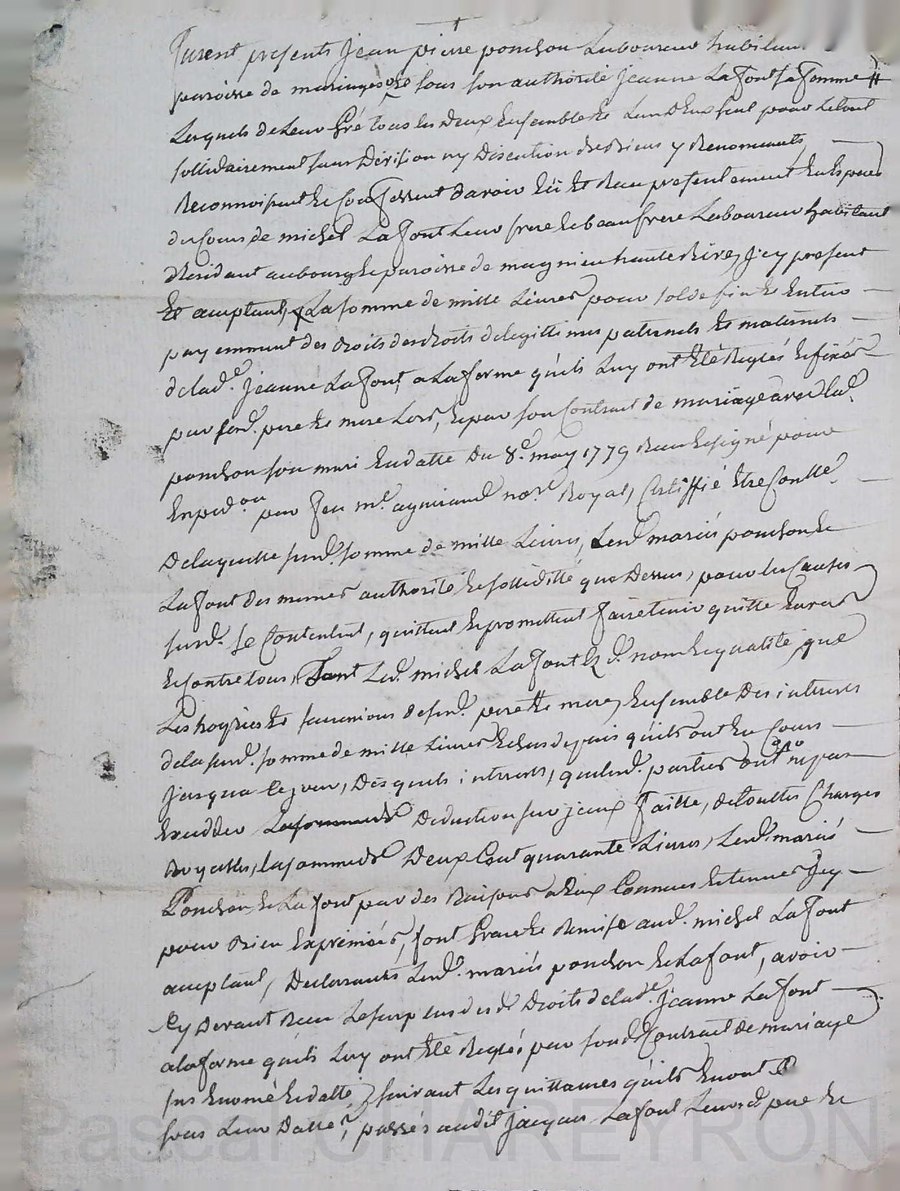 furent présents Jean pierre ponchon Laboureur habitant
paroisse de maringues et sous son authorité Jeanne Lafont sa femme #
Lesquels de Leur gré tous les deux Ensemble et Lun deux seul pour Letout
sollidairement sans division ny discution de biens y Renoncants
Reconnoissent et confessent davoir Eü et Receu présentement En Espèces
du Cours de michel Lafont Leur frere et beaufrere Laboureur habitant
et Residant au bourg et paroisse de magnieu hauterive, Icy présent
Et acceptant, La somme de mille Livres pour solde fin et Entier
payemment des droits des droits de legittimes paternels et maternels
de lad.e Jeanne Lafont, a Laforme quils Luy ont Eté Reglés et fixés
par sesd. pere et mere Lors, et par son Contract de mariage avec led.
ponchon son mari En datte du 8.e may 1779 Receu et signé pour
Expéd.on par feu m.e aymiand no.re Royal, Certiffié Etre Contlé.
De laquelle susd. somme de mille Livres, Lesd. mariés ponchon et
Lafont des memes authorité et sollidité que dessus, pour les Causes
susd. se Contentent, quittent et promettent faire tenir quitte Envers
et contre tous, Tant Led. michel Lafont Esd. nom et qualité, que
Les hoyries et successions desd. pere et mere, Ensemble des interrets
de la susd. somme de mille Livres Echus depuis quils ont Eu Cours
jusqua ce jour, desquels interrets, quelesd. parties ont
Exceder Lasomme de Deduction sur jceux faitte, de touttes Charges
Royalles, la somme de Deux Cent quarante Livres, Lesd. mariés
Ponchon et Lafont par des Raisons a Eux Connues et tenues Icy
pour bien Exprimées, font Grace et Remise aud. michel Lafont
acceptant, Declarants Lesd. mariés ponchon et Lafont, avoir
Cy devant Receu Le surplus desd. Droits de lad.e Jeanne Lafont
a la forme quils Luy ont Eté Reglés par sond. Contract de mariage
sus Enomé et datté, suivant Les quittances quils En ont
sous Leur Datte, passés audit Jacques Lafont Leursd. pere et
Pascal CHAREYRON